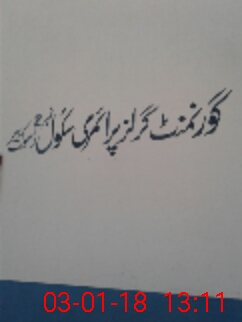 گورنمنٹ گرلز پرائمری سکول
03-01-18 13:11